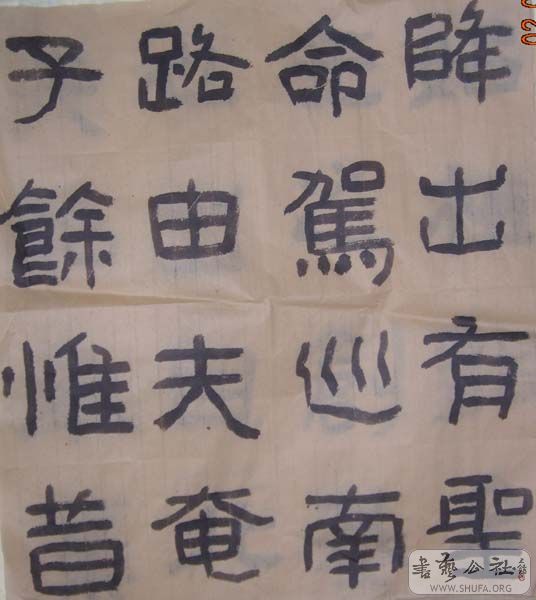 降出有聖
命駕巡南
路由夫奄
子餘惟昔
書藝公社
WWW.SHUFA.ORG